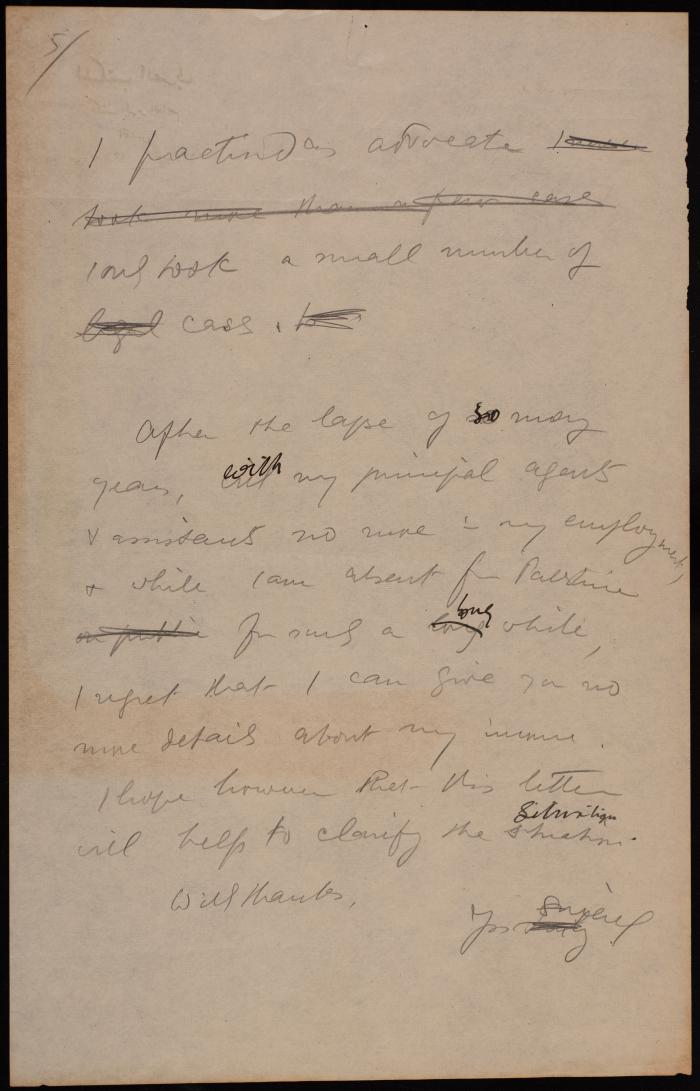 5/
I practised as advocate I
took more than a few cases
I only took a small number of
legal cases.
After the lapse of so many
years, with my principal agents
& assistants no more in my employment,
& while I am absent from Palestine
on public for such a long long while,
I regret that I can give you no
more details about my income.
I hope however that this letter
will help to clarify the situation situation.
With thanks,
Yrs sincerely